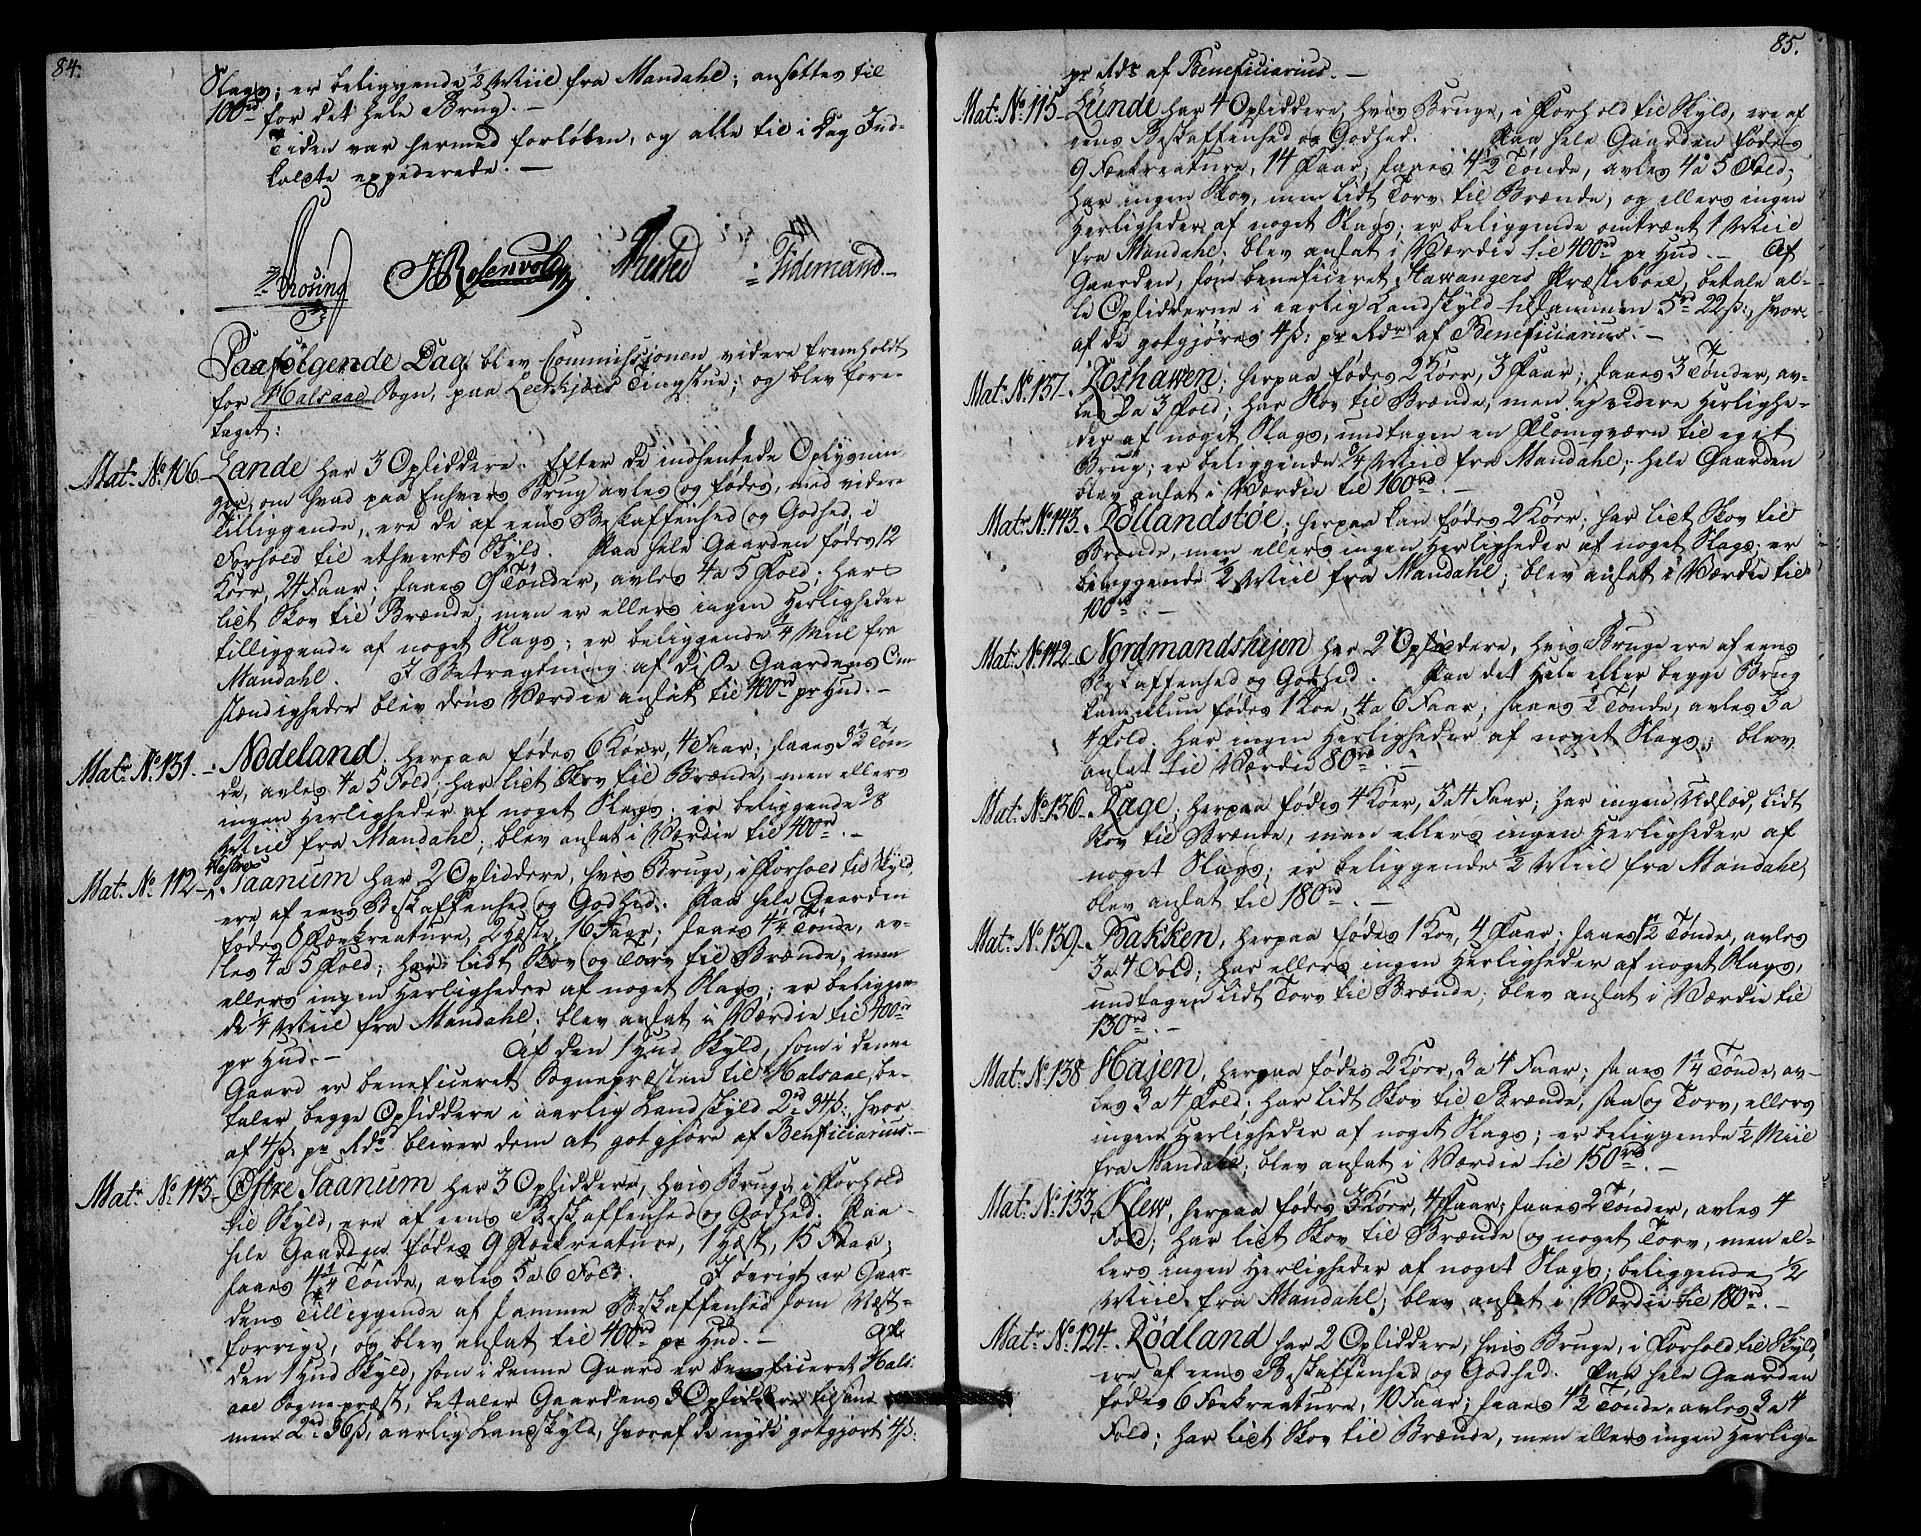 84.
Slags; er beliggende ½ Miil fra Mandahl; ansættes til
100rd for det hele Brug. —
Tiden var hermed forløben, og alle til i Dag Ind-
kaldte expederede. —
Rosenvold
Tidemand. —
Paafølgende Dag blev Commissionen videre fremholdt
for Halsaae Sogn, paa Tingstue; og blev fore-
taget:
Mat: No 106. Lande har 3 Opsiddere. Efter de indhentede Oplysnin
ger, om hvad paa Enhvers Brug avles og fødes, med videre
Tilliggende, ere de af eens Beskaffenhed og Godhed, i
Forhold til ethverts Skyld. Paa hele Gaarden fødes 12
Kör, 24 Faar; saaes 9 Tönder, avles 4 a 5 Fold; har
lidt Skov til Brænde, men er ellers ingen Herligheder
tilliggende af noget Slags; er beliggende ¼ Miil fra
Mandahl. I Betragtning af disse Gaardens Om
stændigheder blev dens Værdie ansat til 400rd pr Hud. —
Mat: No 131. — Nödeland, herpaa fødes 6 Kör, 4 Faar; saaes 3½ Tön-
de, avles 4 a 5 Fold; har lidt Skov til Brænde, men ellers
ingen Herligheder af noget Slags; er beliggende 3/8
Miil fra Mandahl; blev ansat i Værdie til 400rd. —
Mat: No 112 — Westre Saanum har 2 Opsiddere, hvis Bruge, i Forhold til Skyld,
ere af eens Beskaffenhed og Godhed. Paa hele Gaarden
fødes 8 Fækreature, 2 Hæste, 16 Faar; saaes 4¼ Tönde, av-
les 4 a 5 Fold; har lidt Skov og Torv til Brænde, men
ellers ingen Herligheder af noget Slags; er beliggen-
de ¼ Miil fra Mandahl; blev ansat i Værdie til 400rd
pr Hud. — Af den 1 Hud Skyld, som i denne
Gaard er beneficeret Sognepræsten til Halsaae, be-
taler begge Opsiddere i aarlig Landskyld 2rd 34ß:, hvor
af 4ß: pr Rdr bliver dem at gotgjöre af Benficiarius. —
Mat: No 113. Østre Saanum har 3 Opsiddere, hvis Bruge, i Forhold
til Skyld, ere af eens Beskaffenhed og Godhed. Paa
hele Gaarden fødes 9 Fækreature, 1 Hæst, 15 Faar;
saaes 4¼ Tönde, avles 5 a 6 Fold. I øvrigt er Gaar-
dens Tilliggende af samme Beskaffenhed som Næst-
forrige, og blev ansat til 400rd pr Hud. — Af
den 1 Hud Skyld, som i denne Gaard er beneficeret Hals-
aae Sognepræst, betaler Gaardens 3 Opsiddere tilsam
men 2rd 36ß, aarlig Landskyld, hvoraf de nyde gotgjort 4ß:
85.
pr Rdr af Beneficiarius. —
Mat: No 115 — Lünde har 4 Opsiddere, hvis Bruge, i Forhold til Skyld, ere af
eens Beskaffenhed og Godhed. Paa hele Gaarden fødes
9 Fækreature, 14 Faar, saaes 4½ Tönde, avles 4 a 5 Fold;
har ingen Skov, men lidt Torv til Brænde, og ellers ingen
Herligheder af noget Slags; er beliggende omtrent 1 Miil
fra Mandahl; blev ansat i Værdie til 400rd pr Hud. — Af
Gaarden, som beneficeret Stawangers Præsteboel, betale al-
le Opsidderne i aarlig Landskyld tilsammen 5rd 22ß:, hvor-
af de gotgjöres 4ß: pr Rdr af Beneficiarius. —
Mat: No 137 — Roshawen; herpaa fødes 2 Kör, 3 Faar; saaes 3 Tönder, av-
les 2 a 3 Fold; har Skov til Brænde, men ej videre Herlighe-
der af noget Slags, undtagen en Flomqværn til eget
Brug; er beliggende ¼ Miil fra Mandahl; hele Gaarden
blev ansat i Værdie til 160rd. —
Mat: No 143. Röllandstöe; herpaa kan fødes 2 Kör; har lidt Skov til
Brænde, men ellers ingen Herligheder af noget Slags; er
beliggende ½ Miil fra Mandahl; blev ansat i Værdie til
100rd. —
Mat: No 142 — Nordmandshejen har 2 Opsiddere, hvis Bruge ere af eens
Beskaffenhed og Godhed. Paa det Hele eller begge Brug
kan ikun fødes 1 Koe, 4 a 6 Faar; saaes ½ Tönde, avles 3 a
4 Fold. Har ingen Herligheder af noget Slags; blev
ansat til Værdie 80rd. —
Mat: No 136 — Rage; herpaa fødes 4 Köer, 3 a 4 Faar; har ingen Udsæd, lidt
Skov til Brænde, men ellers ingen Herligheder af
noget Slags; er beliggende ½ Miil fra Mandahl;
blev ansat til 180rd. —
Mat: No 139. Bakken, herpaa fødes 1 Koe, 4 Faar; saaes ½ Tönde, avles
3 a 4 Fold; har ellers ingen Herligheder af noget Slags,
undtagen lidt Torv til Brænde; blev ansat i Værdie til
130rd. —
Mat: No 138 Hajen, herpaa fødes 2 Kör, 3 a 4 Faar; saaes 1¼ Tönde, av-
les 3 a 4 Fold; har lidt Skov til Brænde, saa og Torv, ellers
ingen Herligheder af noget Slags; er beliggende ½ Miil
fra Mandahl; blev ansat i Værdie til 150rd. —
Mat: No 133, Klew, herpaa fødes 3 Kör, 4 Faar; saaes 2 Tönder, avles 4
Fold; har lidt Skov til Brænde og noget Torv, men el-
lers ingen Herligheder af noget Slags; beliggende ½
Miil fra Mandahl; blev ansat i Værdie til 180rd. —
Mat: No 124. Rödland har 2 Opsiddere, hvis Bruge, i Forhold til Skyld,
ere af eens Beskaffenhed og Godhed. Paa hele Gaarden
fødes 6 Fækreature, 10 Faar; saaes 4½ Tönde, avles 3 a 4
Fold; har lidt Skov til Brænde, men ellers ingen Herlig-